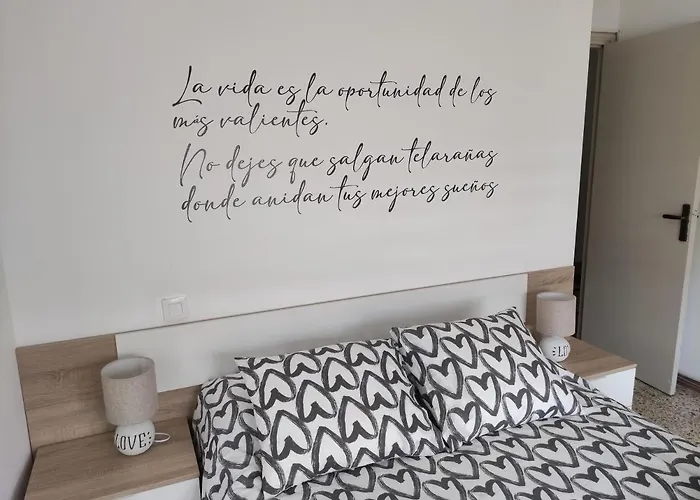 La vida es la oportunidad de los
más valientes.
No dejes que salgan telarañas
donde anidan tus mejores sueños
LOVE